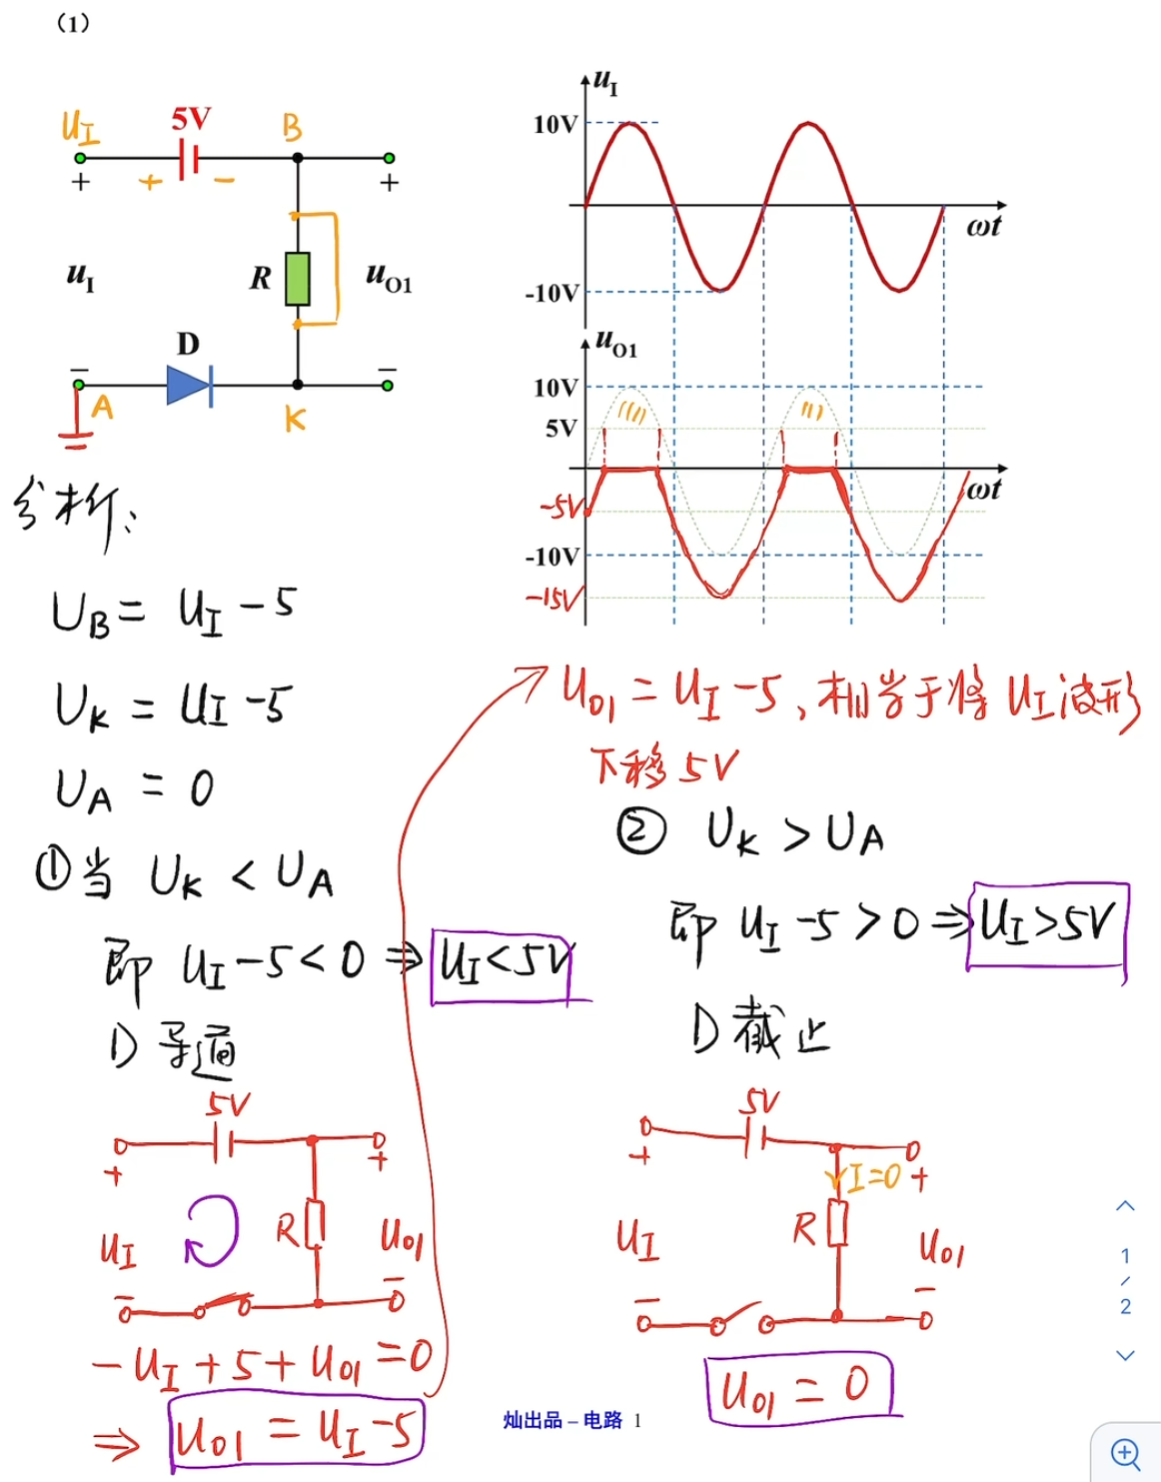 (1)
u_I
10V
-10V
ωt
U_I
5V
B
+ + - +
u_I
R
u_O1
D
- A K -
u_O1
10V
5V
-5V
-10V
-15V
ωt
分析:
U_B = U_I - 5
U_K = U_I - 5
U_A = 0
①当 U_K < U_A
即 U_I - 5 < 0 ⇒ U_I < 5V
D 导通
5V
+ +
U_I
R
U_01
- -
-U_I + 5 + U_01 = 0
⇒ U_01 = U_I - 5
U_01 = U_I - 5, 相当于将 U_I 波形
下移 5V
② U_K > U_A
即 U_I - 5 > 0 ⇒ U_I > 5V
D 截止
5V
+ I=0 +
U_I
R
U_01
- -
U_01 = 0
灿出品 – 电路 1
1
/
2